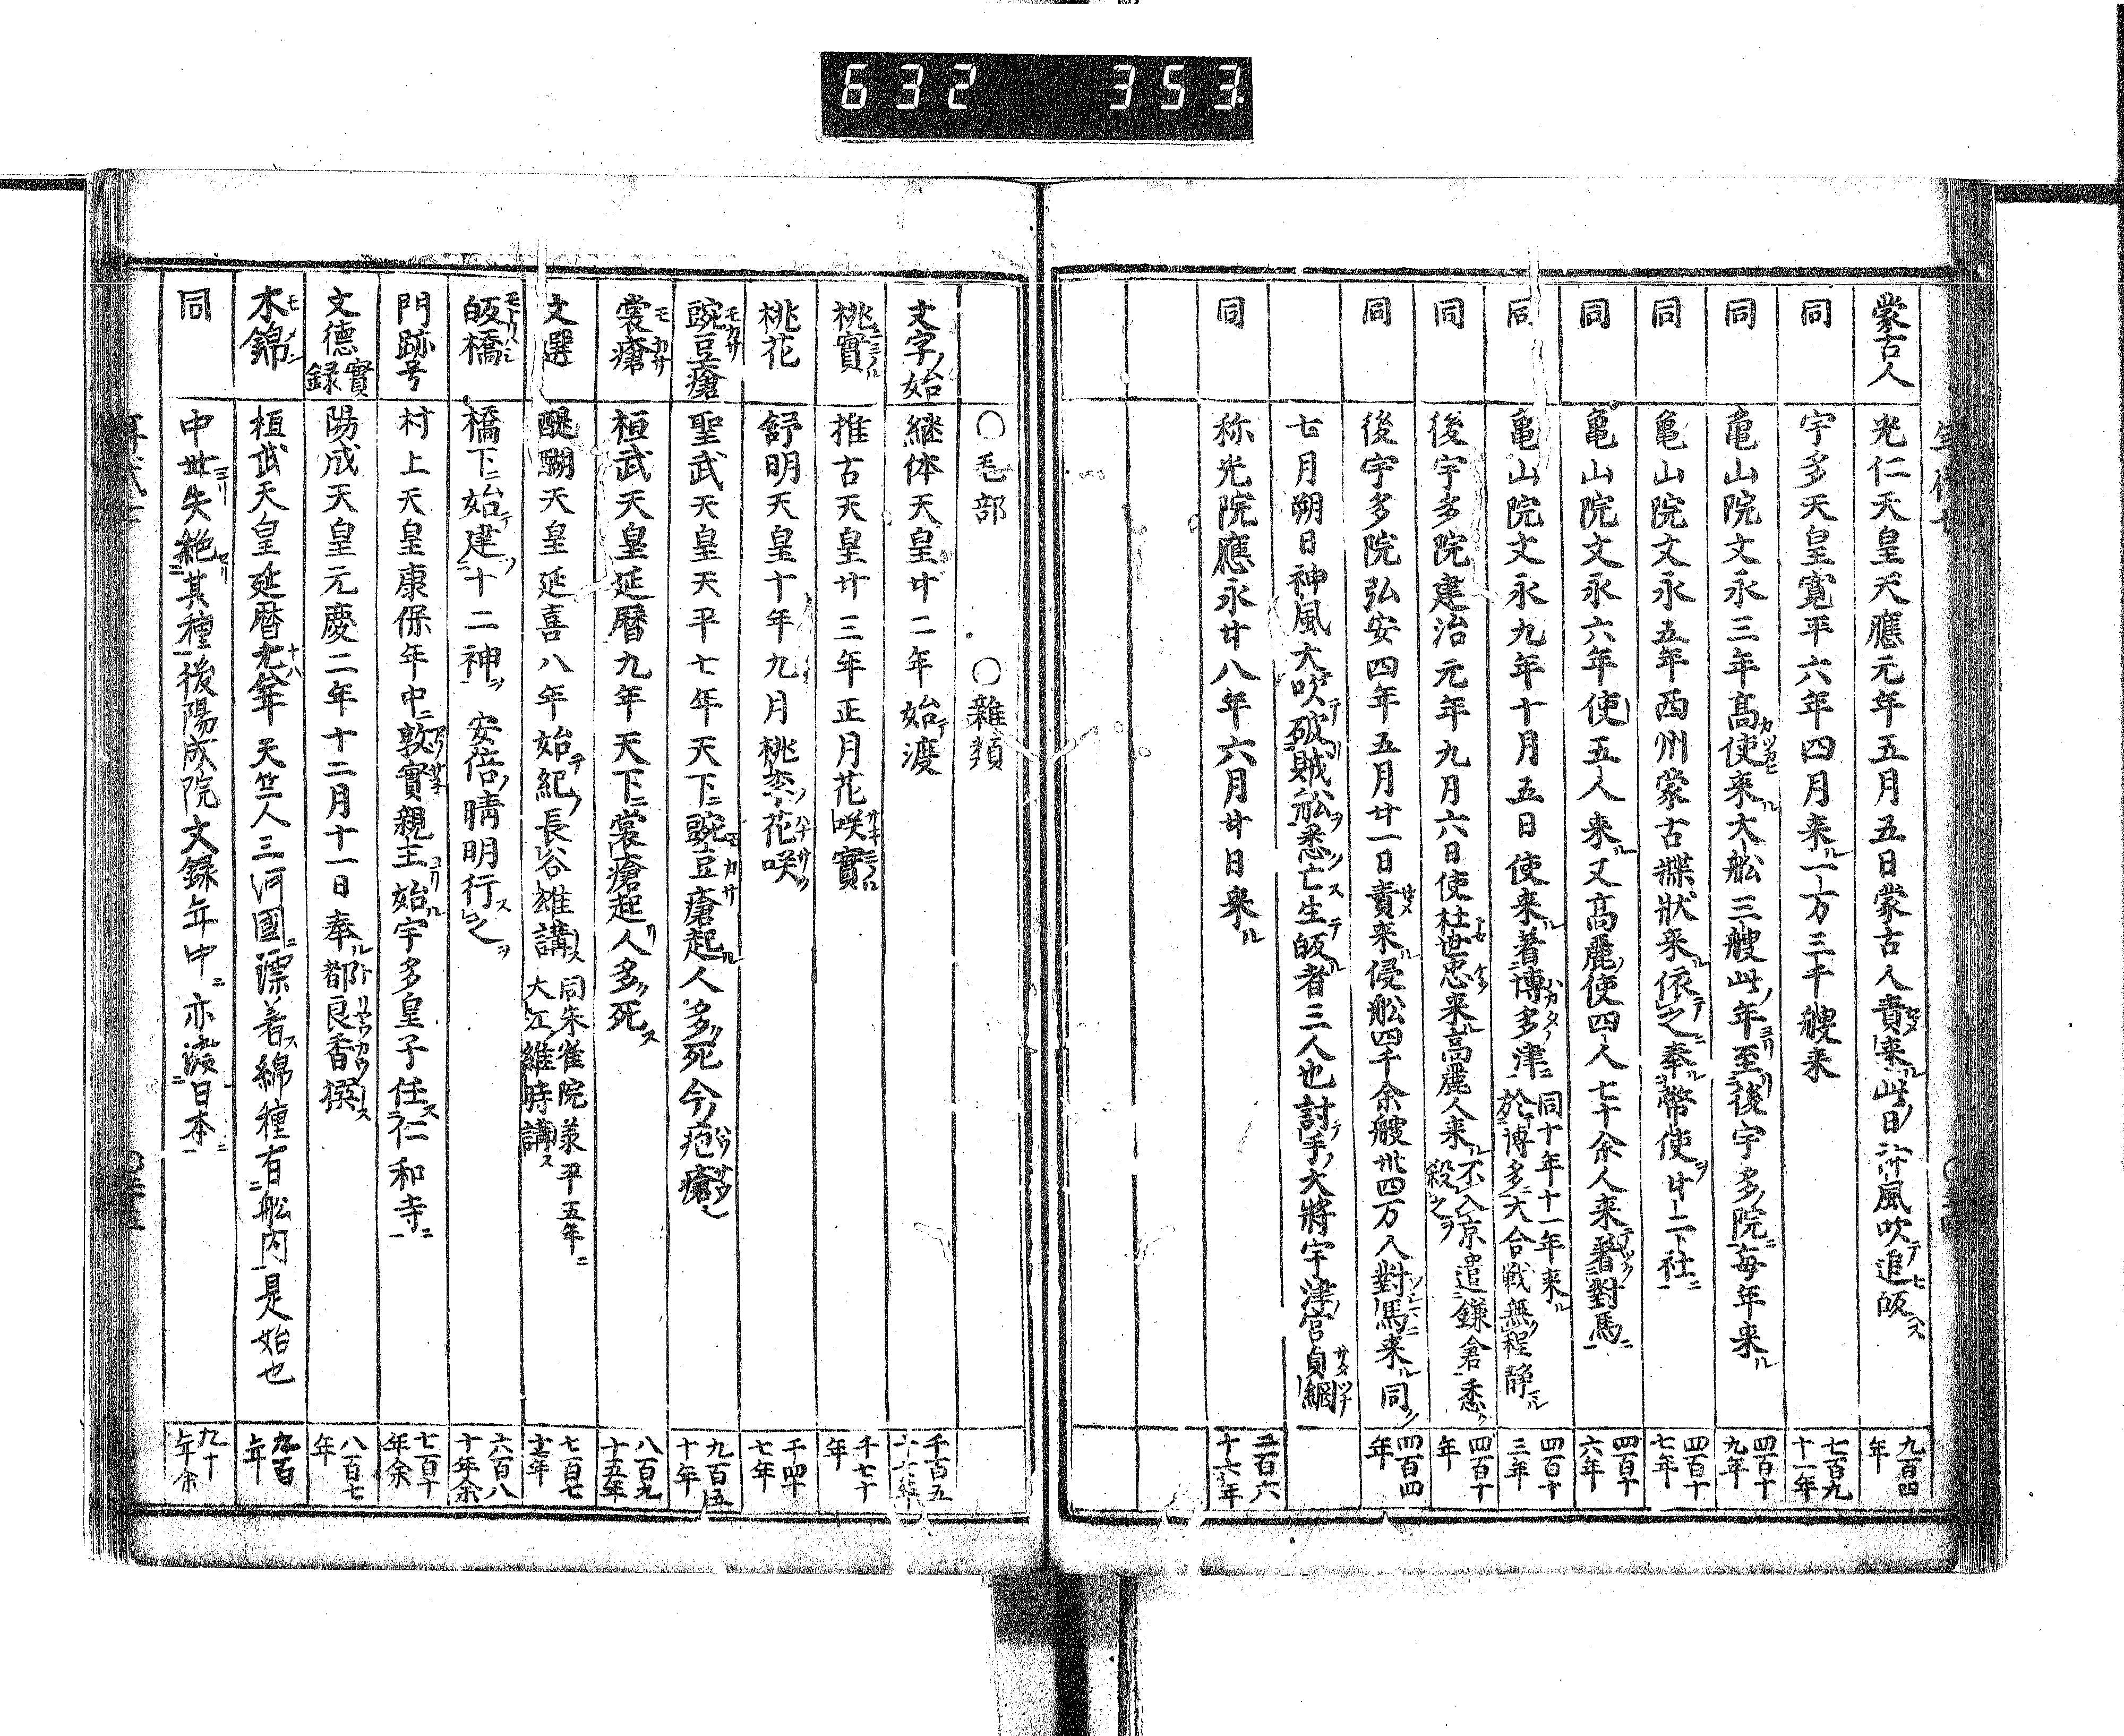 632 353
蒙古人 光仁天皇天應元年五月五日蒙古人責来ル此ノ日沖風吹テ追ヒ皈ス 九百四年
同 宇多天皇寛平六年四月来ル一万三千艘来 七百九十一年
同 亀山院文永三年高使来ル大舩三艘此ノ年ヨリ至ﾘ後宇多院ニ毎年来ル 四百十九年
同 亀山院文永五年西州蒙古牒状来ル依テ之ニ奉ル幣使ヲ廿二社ニ 四百十七年
同 亀山院文永六年使五人来ル又高麗ノ使四人七十余人来テ著ク對馬ニ 四百十六年
同 亀山院文永九年十月五日使来ル著ク博多ノ津ニ 同十年十一年来ル於テ博多ニ大合戦無程静ル 四百十三年
同 後宇多院建治元年九月六日使杜世忠来ル高麗人来ル 不入京遣鎌倉悉ク殺之ヲ 四百十年
同 後宇多院弘安四年五月廿一日責来ル侵舩四千余艘卅四万人對馬ニ来ル同ク 四百四年
七月朔日神風大吹テ破リ賊舩ヲ悉ク亡ス生テ皈ル者三人也討手ノ大將宇津宮貞綱
同 称光院應永廿八年六月廿日来ル 二百六十六年
○毛部 ○雜類
文字ノ始 継体天皇廿二年始テ渡 千百五十七年
桃實 推古天皇廿三年正月花咲實 千七十年
桃花 舒明天皇十年九月桃李ノ花咲 千四十七年
豌豆瘡 聖武天皇天平七年天下ニ豌豆瘡起ル人多ク死今ノ疱瘡之 九百五十年
裳瘡 桓武天皇延暦九年天下ニ裳瘡起リ人多ク死ス 八百九十五年
文選 醍醐天皇延喜八年始テ紀ノ長谷雄講ス 同朱雀院承平五年ニ大江ノ維時講ス 七百七十七年
皈橋 橋下ニ始テ建ツ十二神ヲ安倍ノ晴明行ス之ヲ 六百八十年余
門跡号 村上天皇康保年中ニ敦實親王ヨリ始ル宇多皇子任ス仁和寺ニ 七百十年余
文德實録 陽成天皇元慶二年十二月十一日奉ル都良香撰ス 八百七年
木錦 桓武天皇延暦十八年天竺人三河國ニ漂着ス綿種有舩内ニ是始也 九百年
同 中世ヨリ失絶セリ其種後陽成院文録年中ニ亦渡日本ニ 九十年余